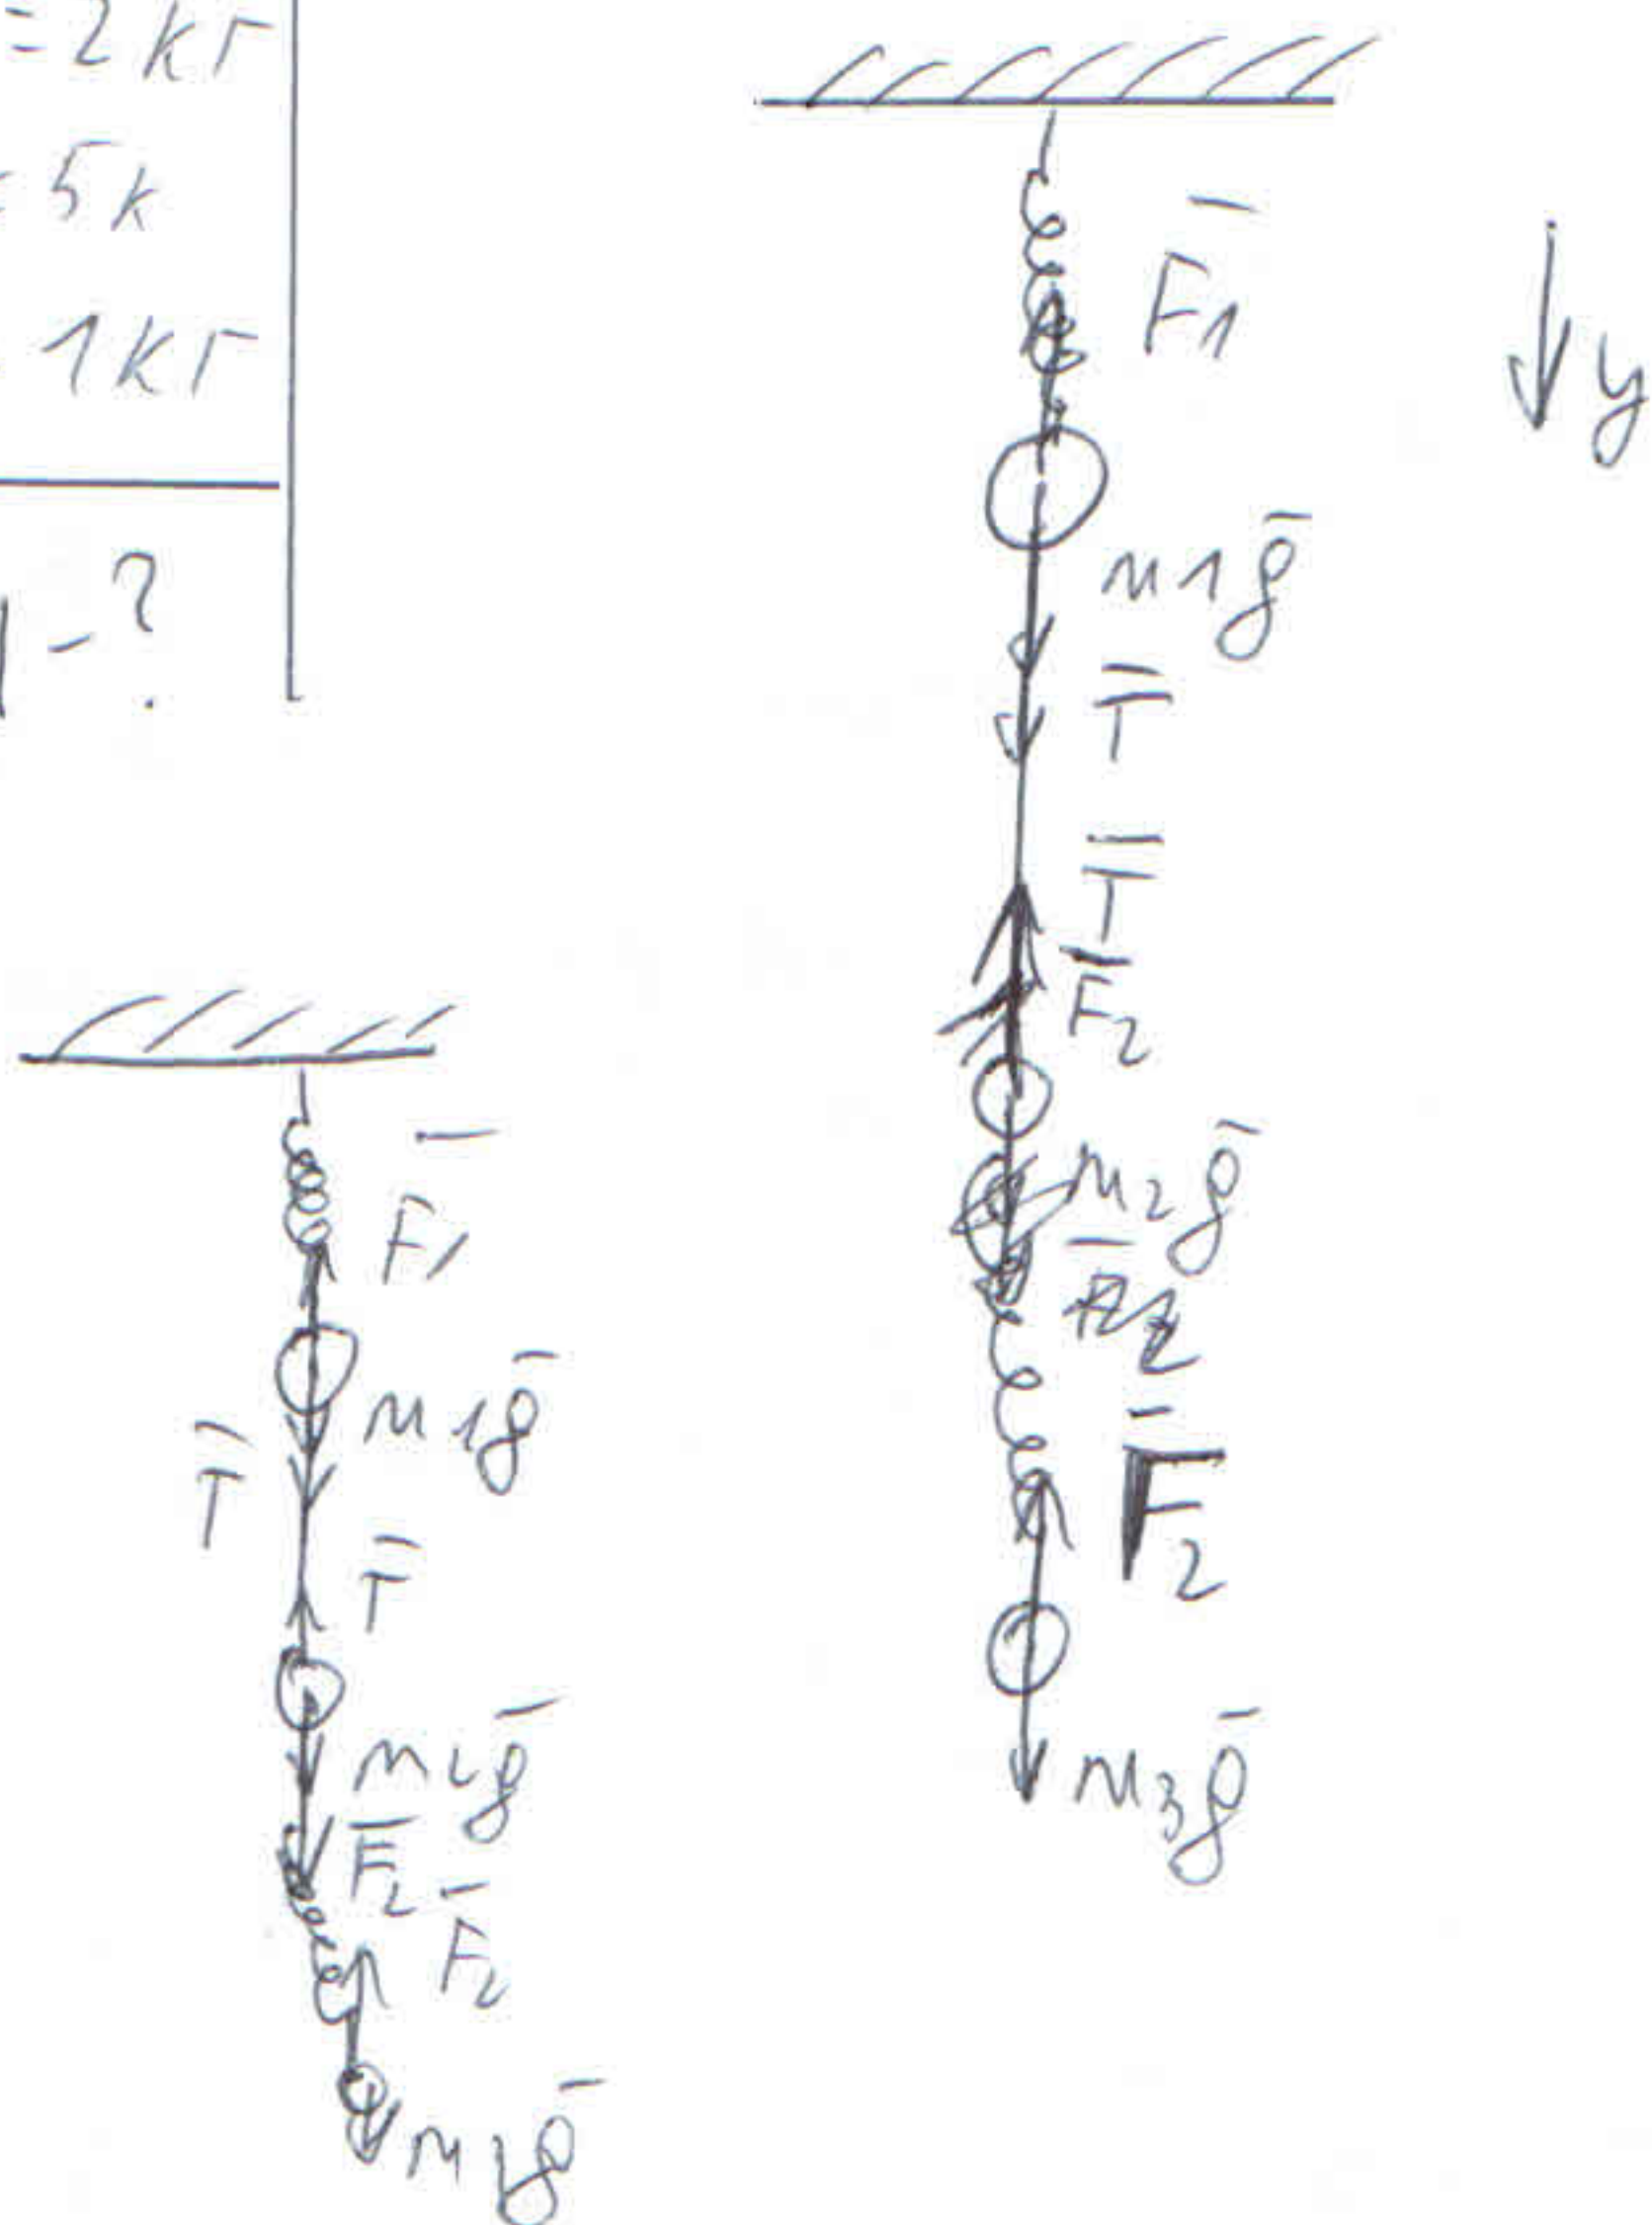 = 2 кг
= 5 к
1 кг
- ?
F̅1
y
m1g̅
T̅
T̅
F̅2
m2g̅
F̅2
m3g̅
F̅1
m1g̅
T̅
T̅
m2g̅
F̅2
F̅2